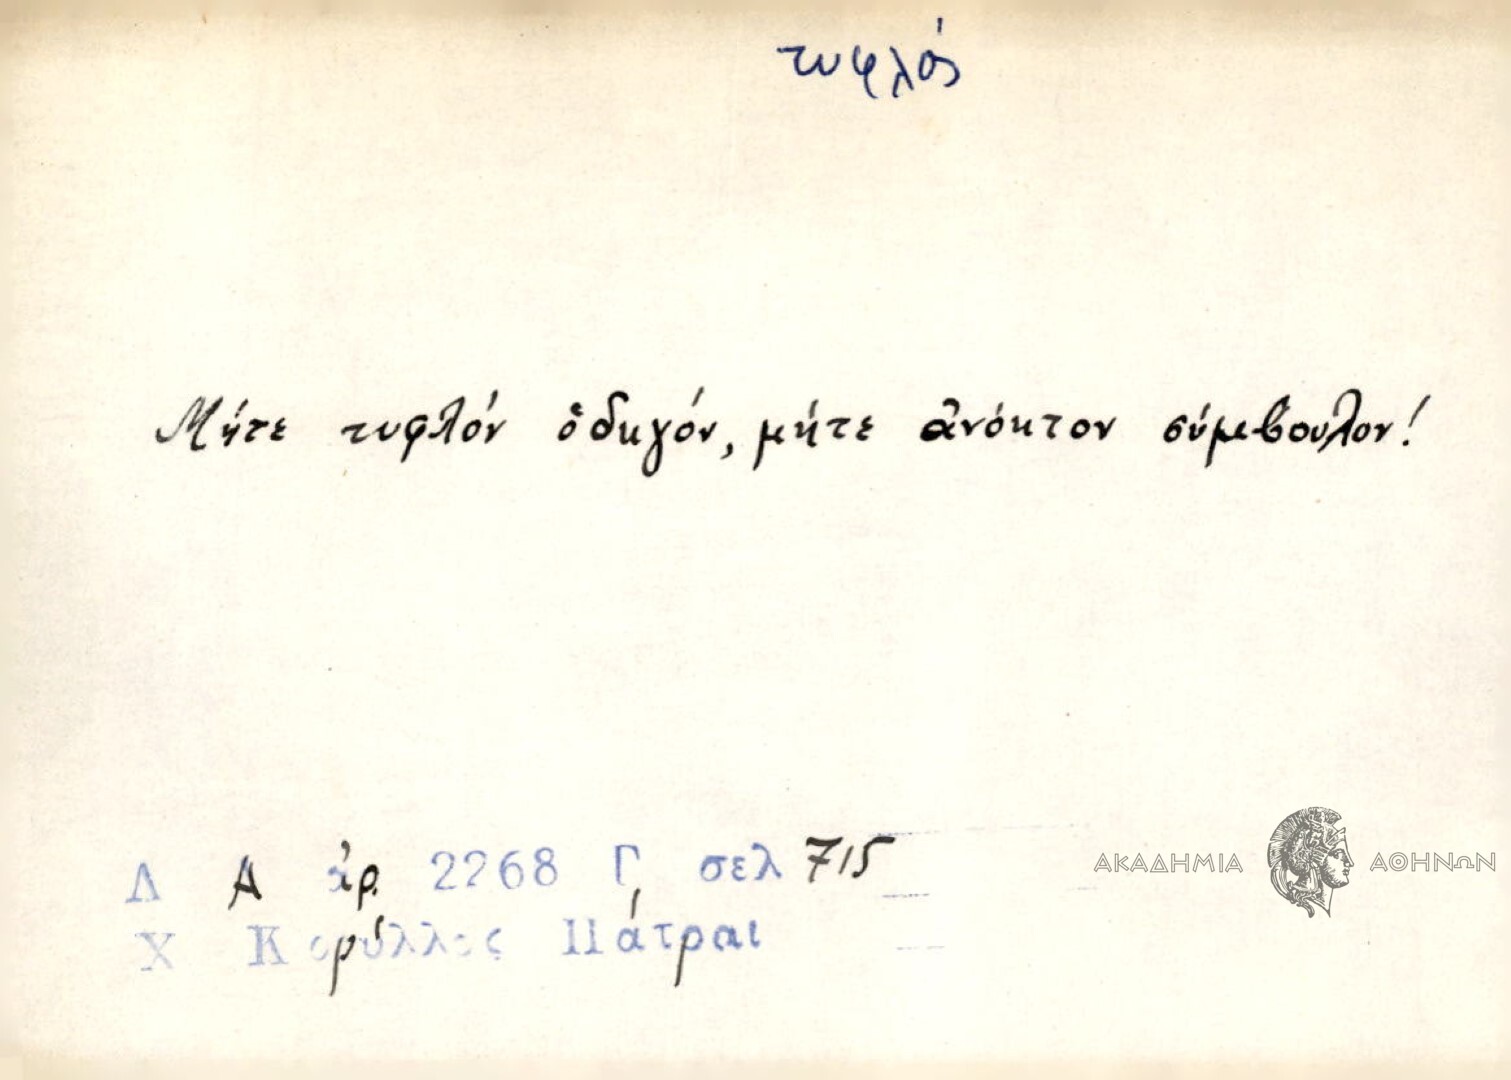 τυφλός
Μήτε τυφλόν ὁδηγόν, μήτε ἀνόητον σύμβουλον!
Λ Α ἀρ. 2268 Γ, σελ 715
Χ Κορύλλος Πάτραι
ΑΚΑΔΗΜΙΑ ΑΘΗΝΩΝ